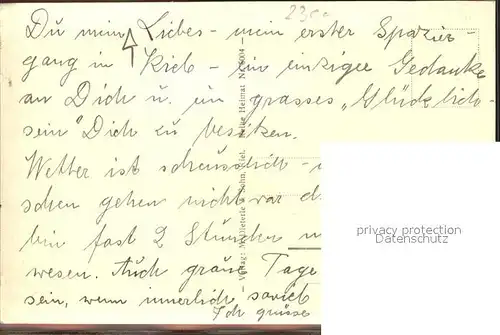 Du mein Liebes - mein erster Spazier-
gang in Kiel - ein einziger Gedanke
an Dich u. ein grosses „Glücklich-
sein" Dich zu besitzen.
Wetter ist scheusslich -
schen gehen nicht vor d
bin fast 2 Stunden
wesen. Auch graue Tage
sein, wenn innerlich soviel
Ich grüsse
23
Heimat
privacy protection
Datenschutz